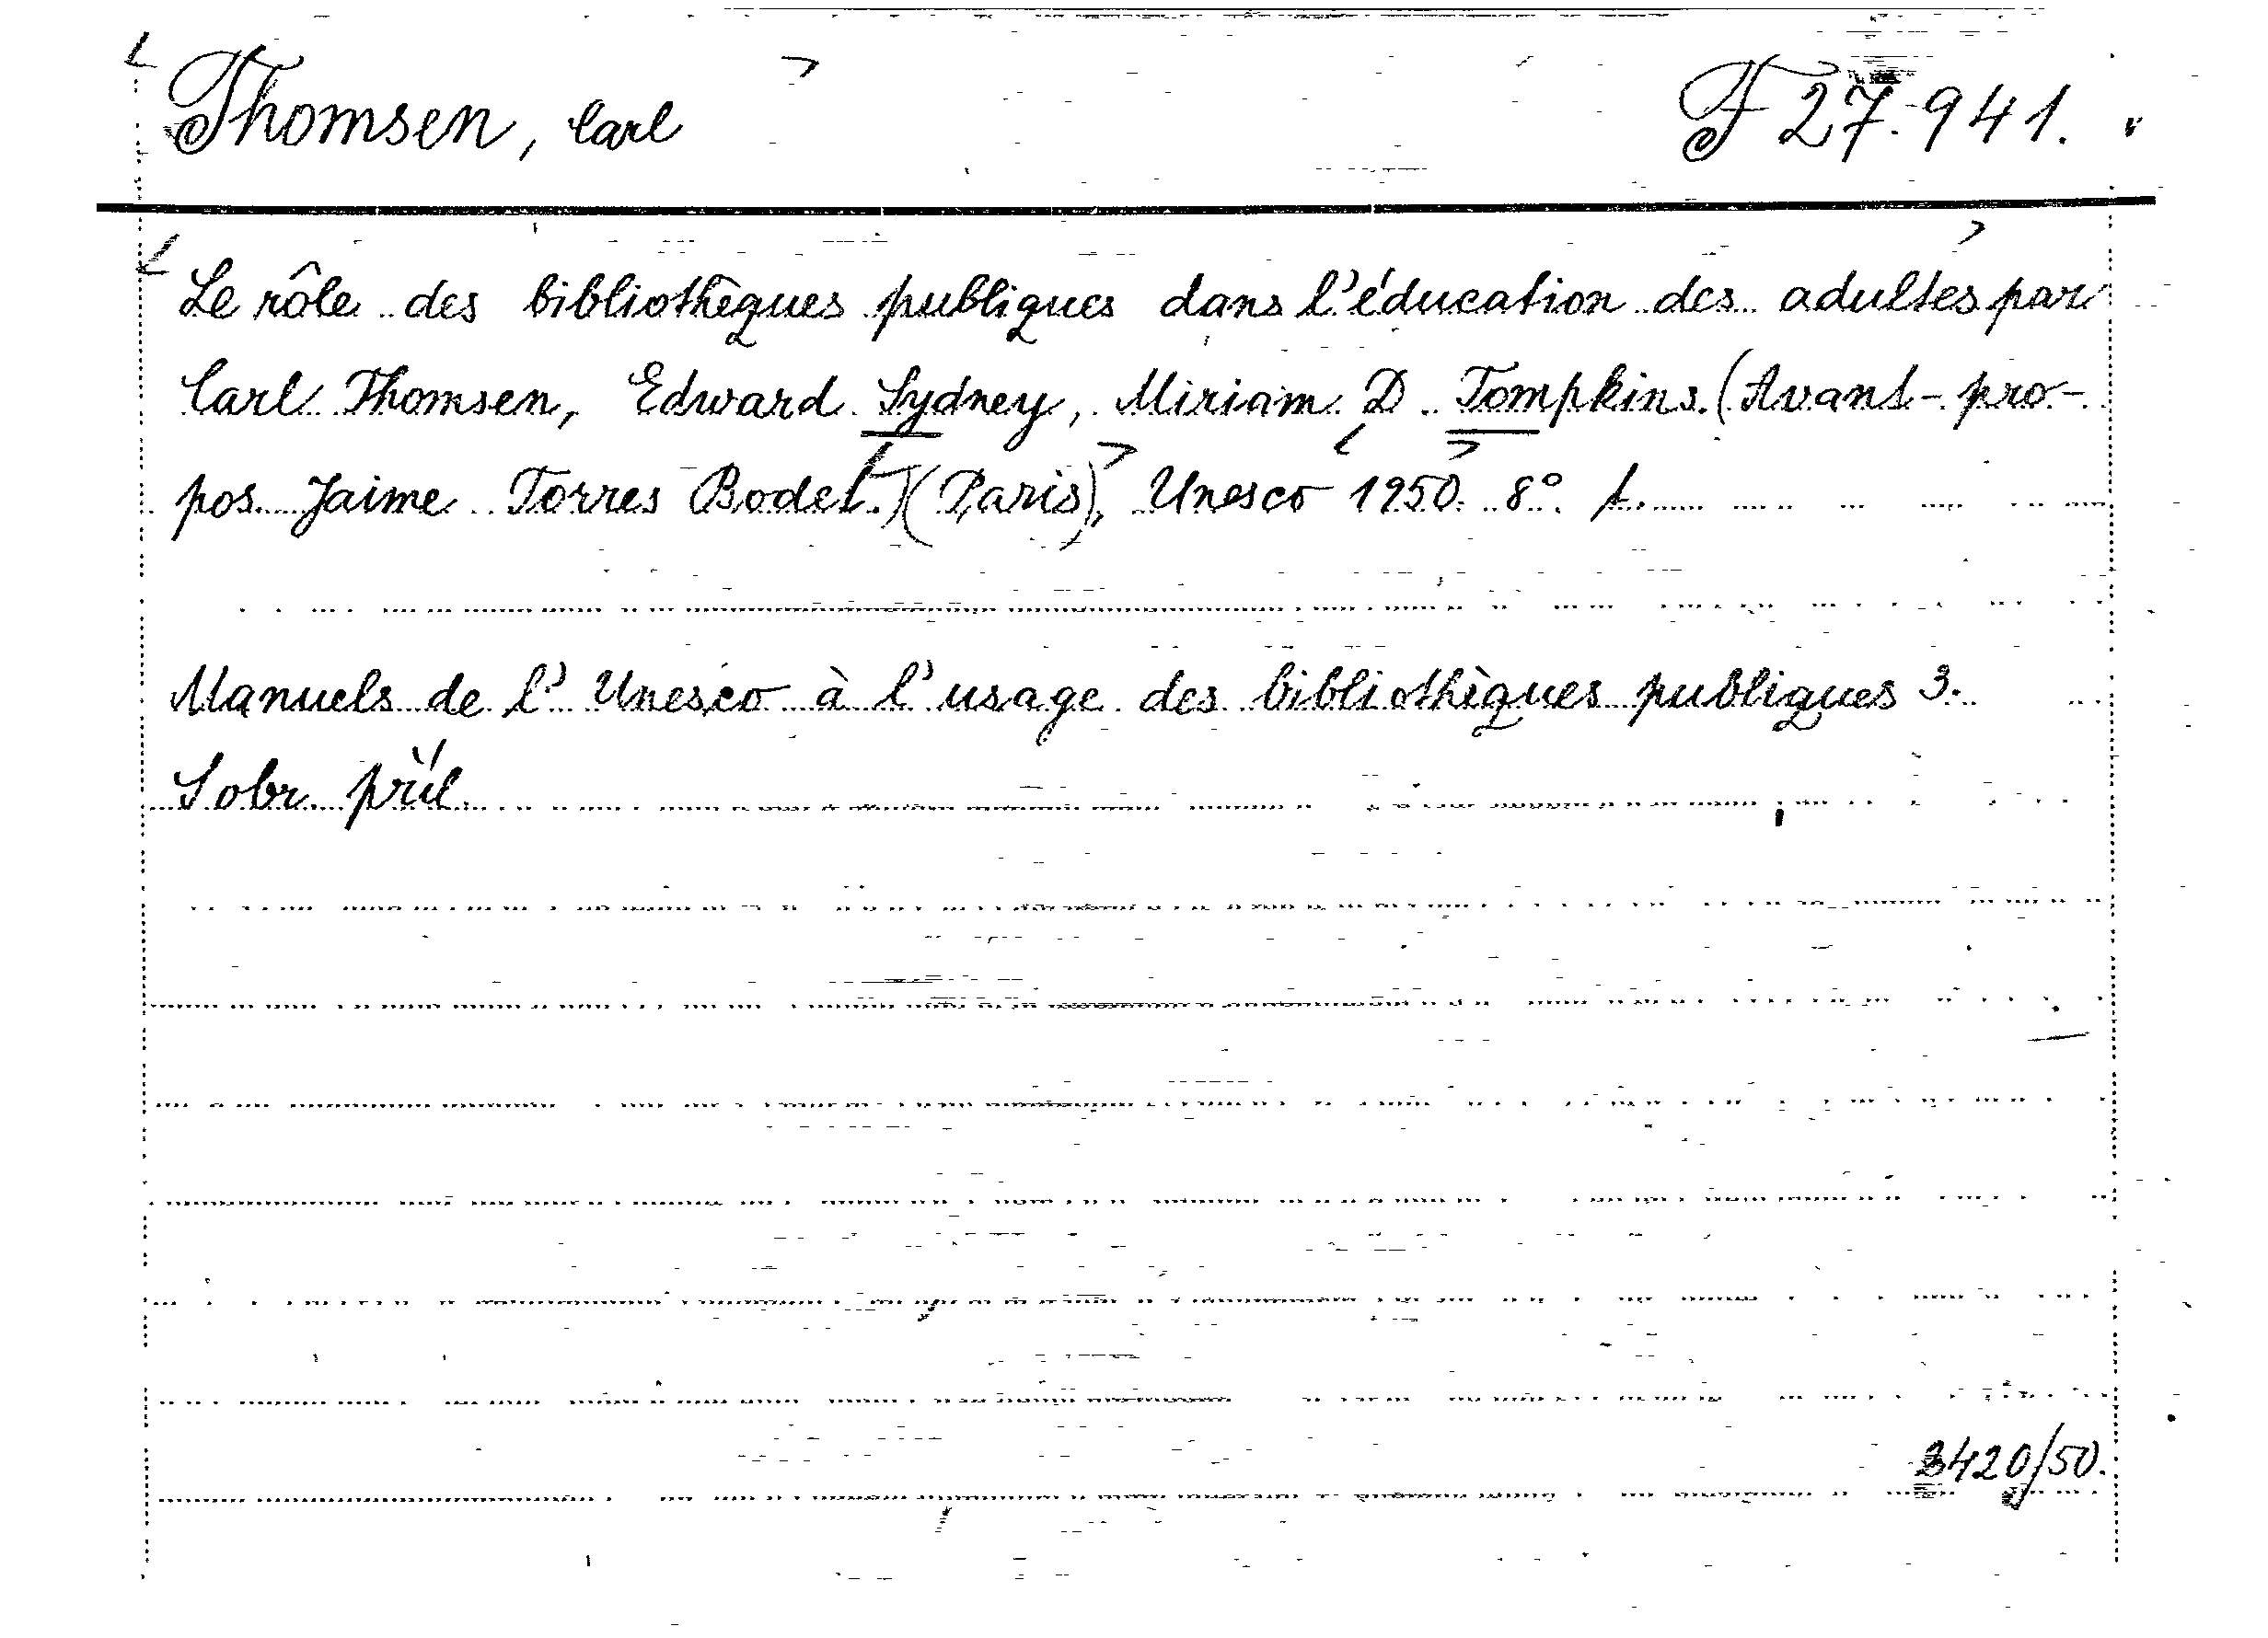 Thomsen, Carl
F 27.941.
Le rôle des bibliothèques publiques dans l'éducation des adultes par
Carl Thomsen, Edward Sydney, Miriam D. Tompkins. (Avant-pro-
pos Jaime Torres Bodet.) (Paris), Unesco 1950. 8°.
Manuels de l'Unesco à l'usage des bibliothèques publiques 3.
Sobr. přil.
3420/50.